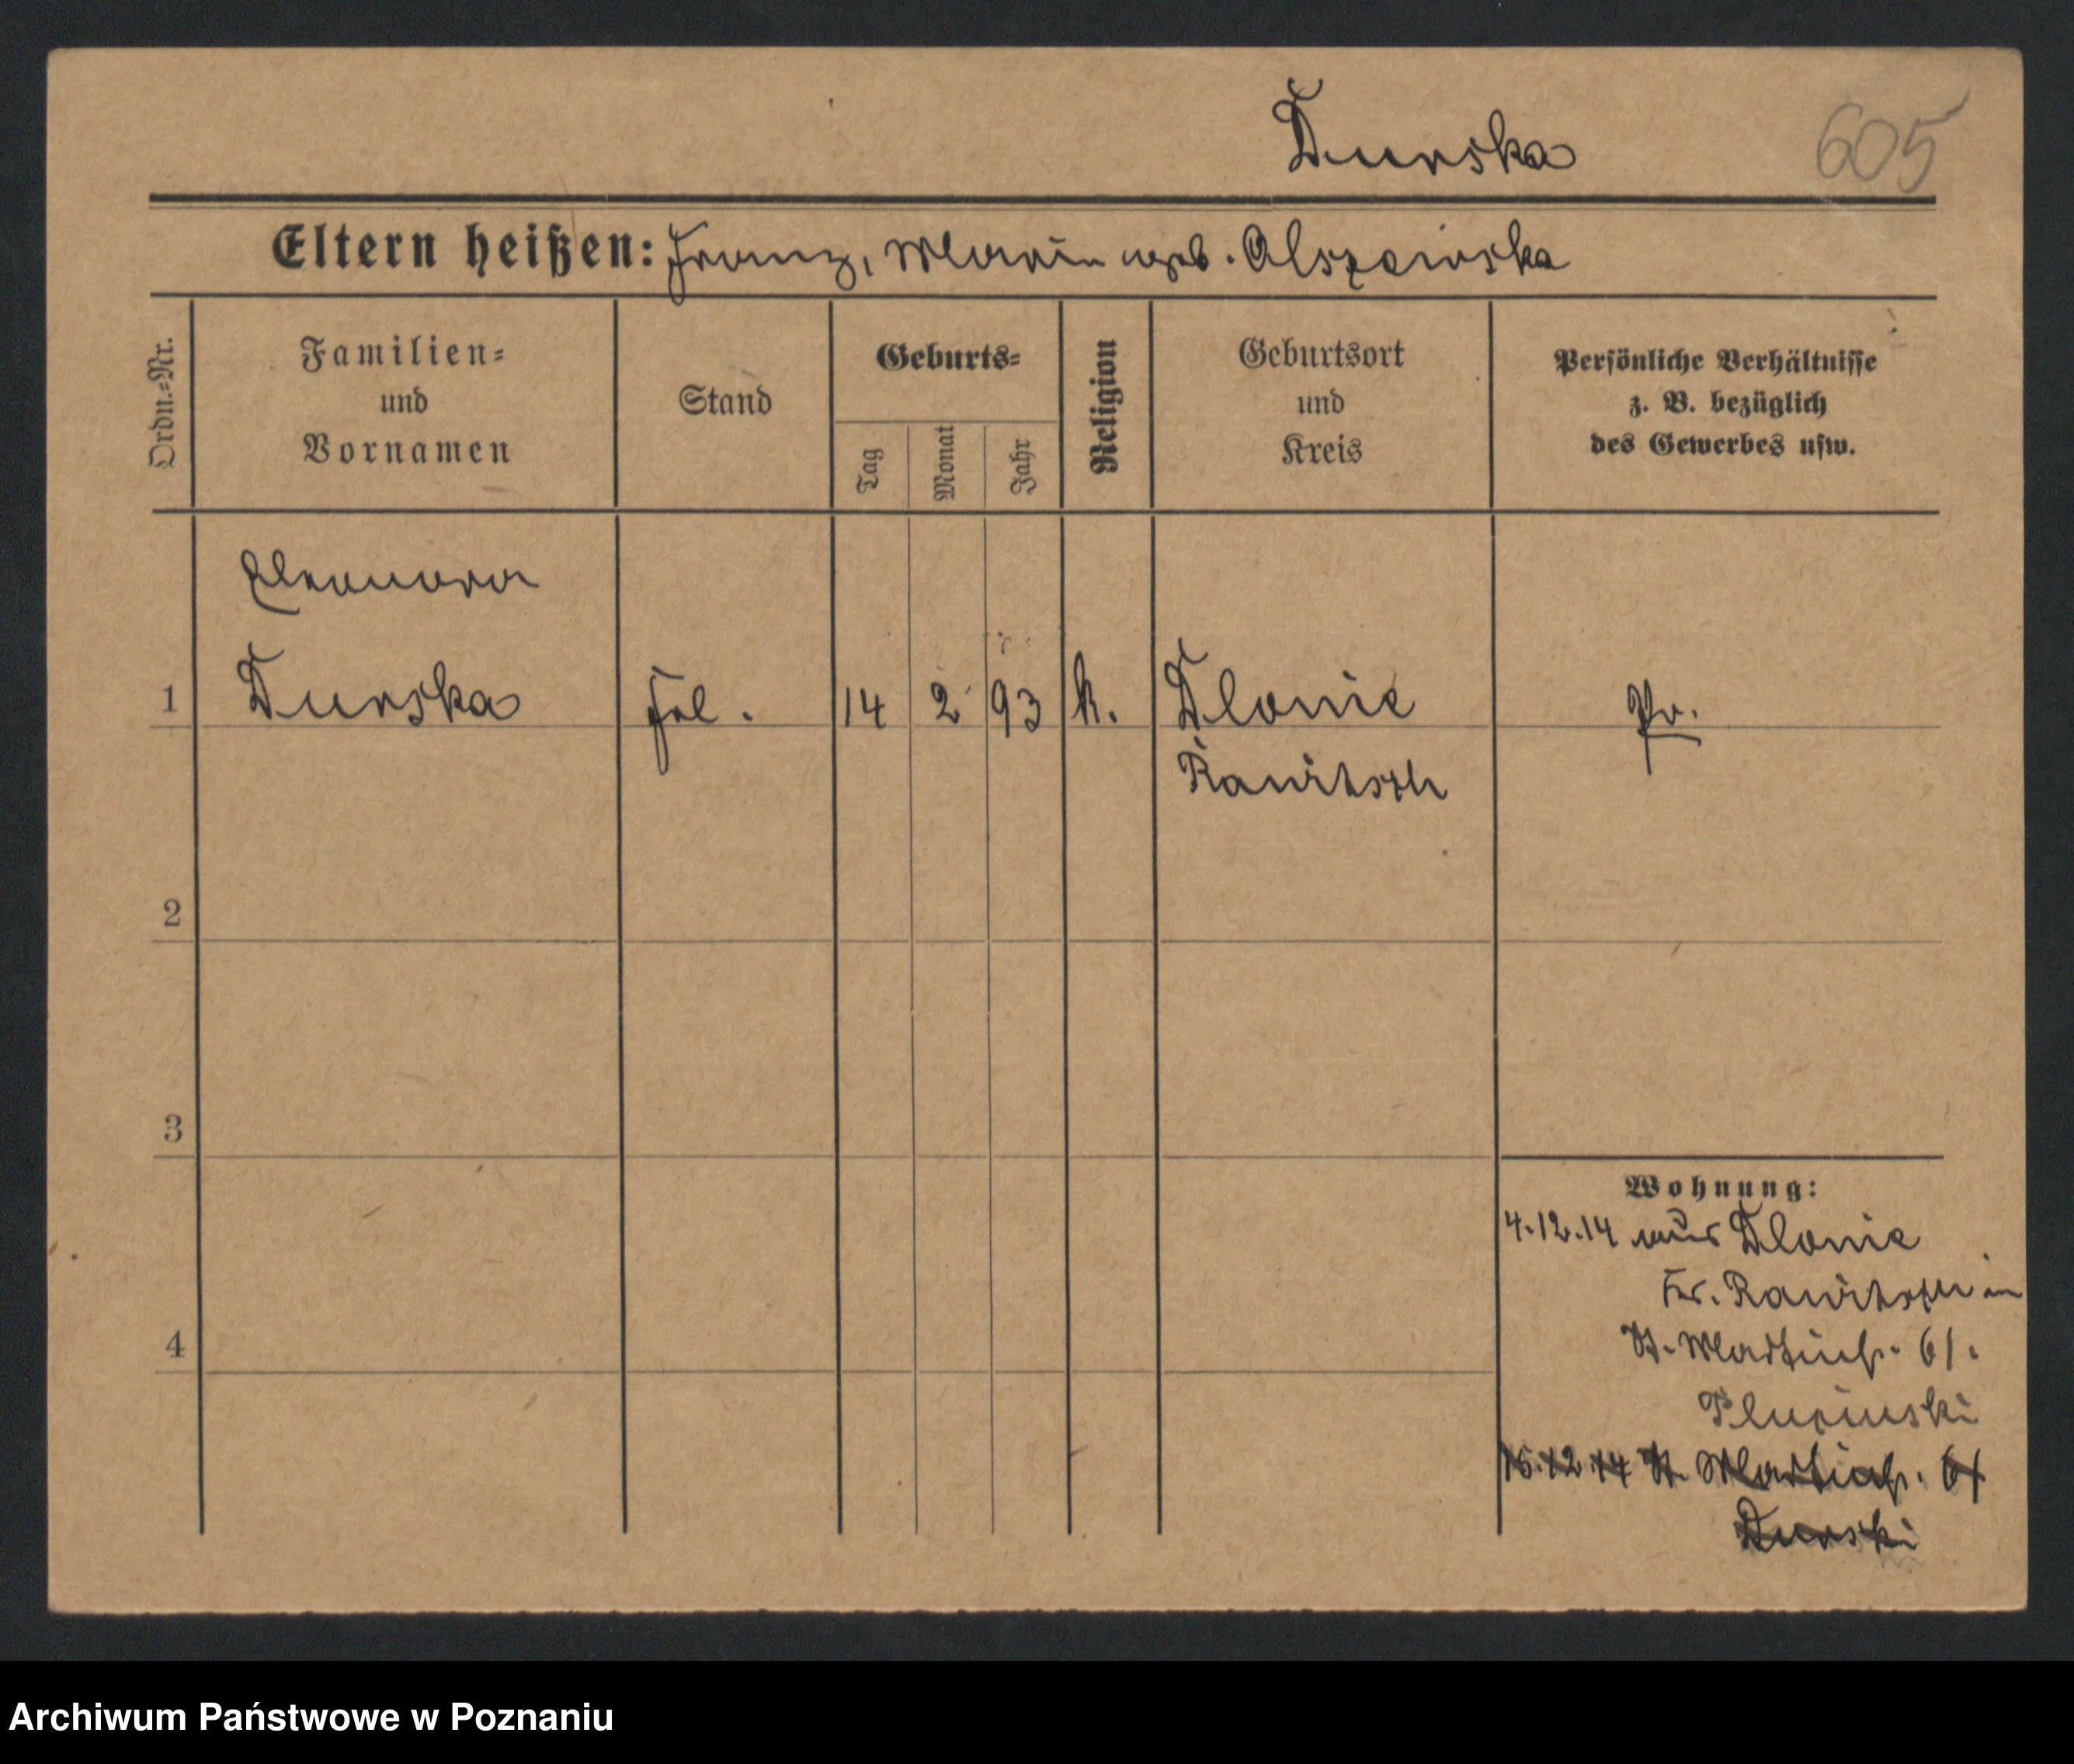 Durska
605
Eltern heißen: Franz, Maria geb. Olszewska
Ordn.-Nr.
Familien-
und
Vornamen
Stand
Geburts-
Tag
Monat
Jahr
Religion
Geburtsort
und
Kreis
Persönliche Verhältnisse
z. B. bezüglich
des Gewerbes usw.
Eleonora
1 Durska Frl. 14 2 93 k. Dlonie Pr.
Rawitsch
2
3
4
Wohnung:
4.12.14 aus Dlonie
Kr. Rawitsch in
St. Martinstr. 61.
15.12.14 St. Martinstr. 61
Durski
Archiwum Państwowe w Poznaniu